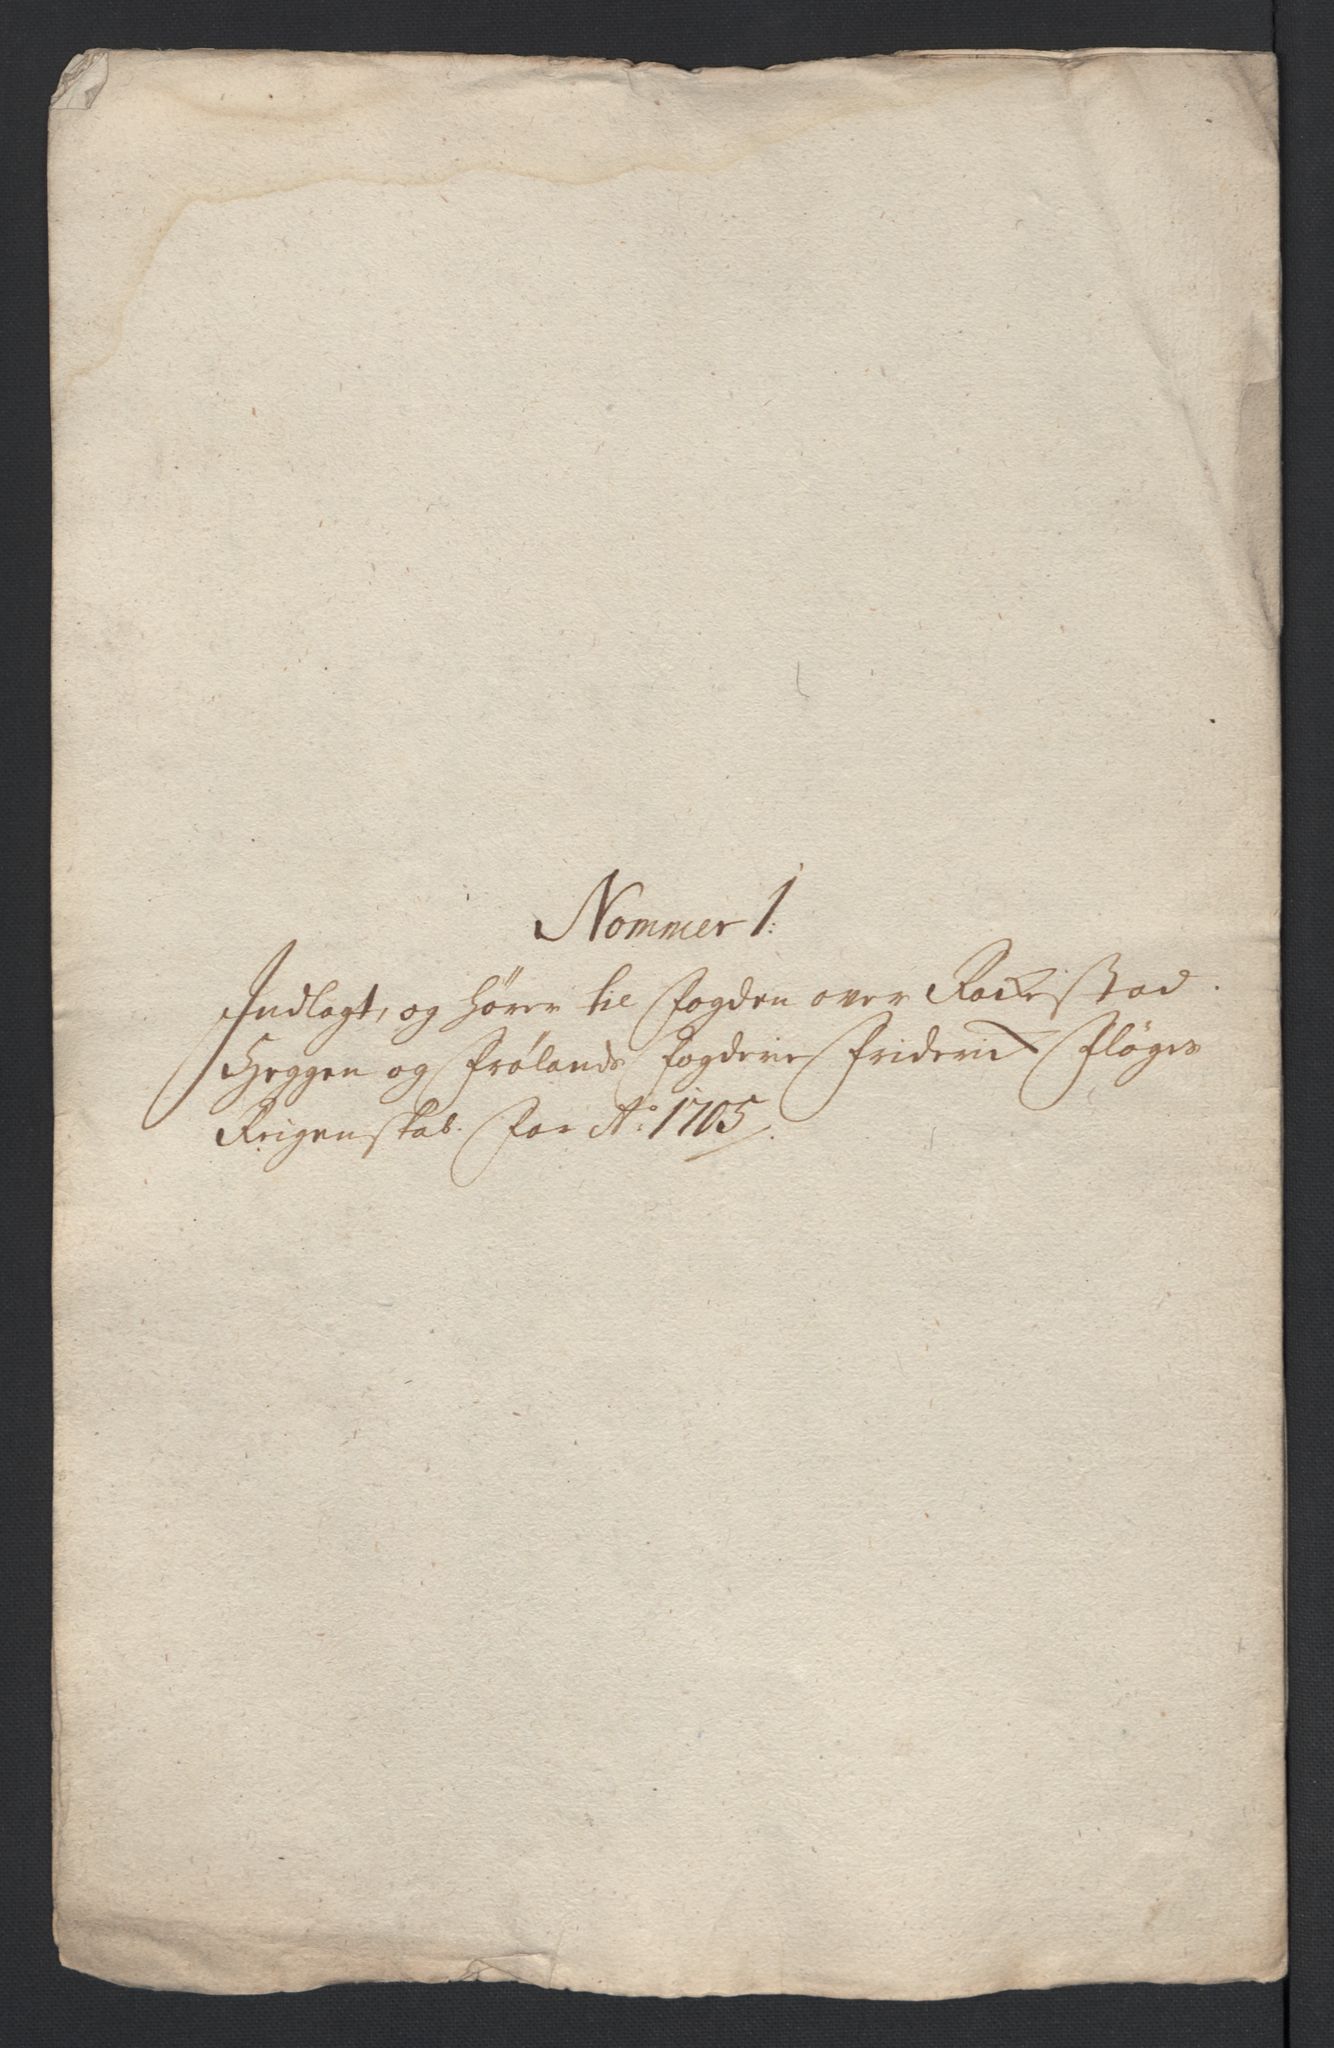 Nommer 1.
Indlagt, og hører til Fogden over Rackestad.
Heggen og Frølands Fogderie Friderich Fløges
Reigenskab. for Ao: 1705.